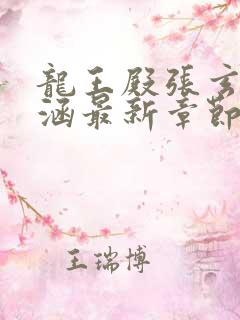 龍王殿張玄
涵最新章節
王瑞博